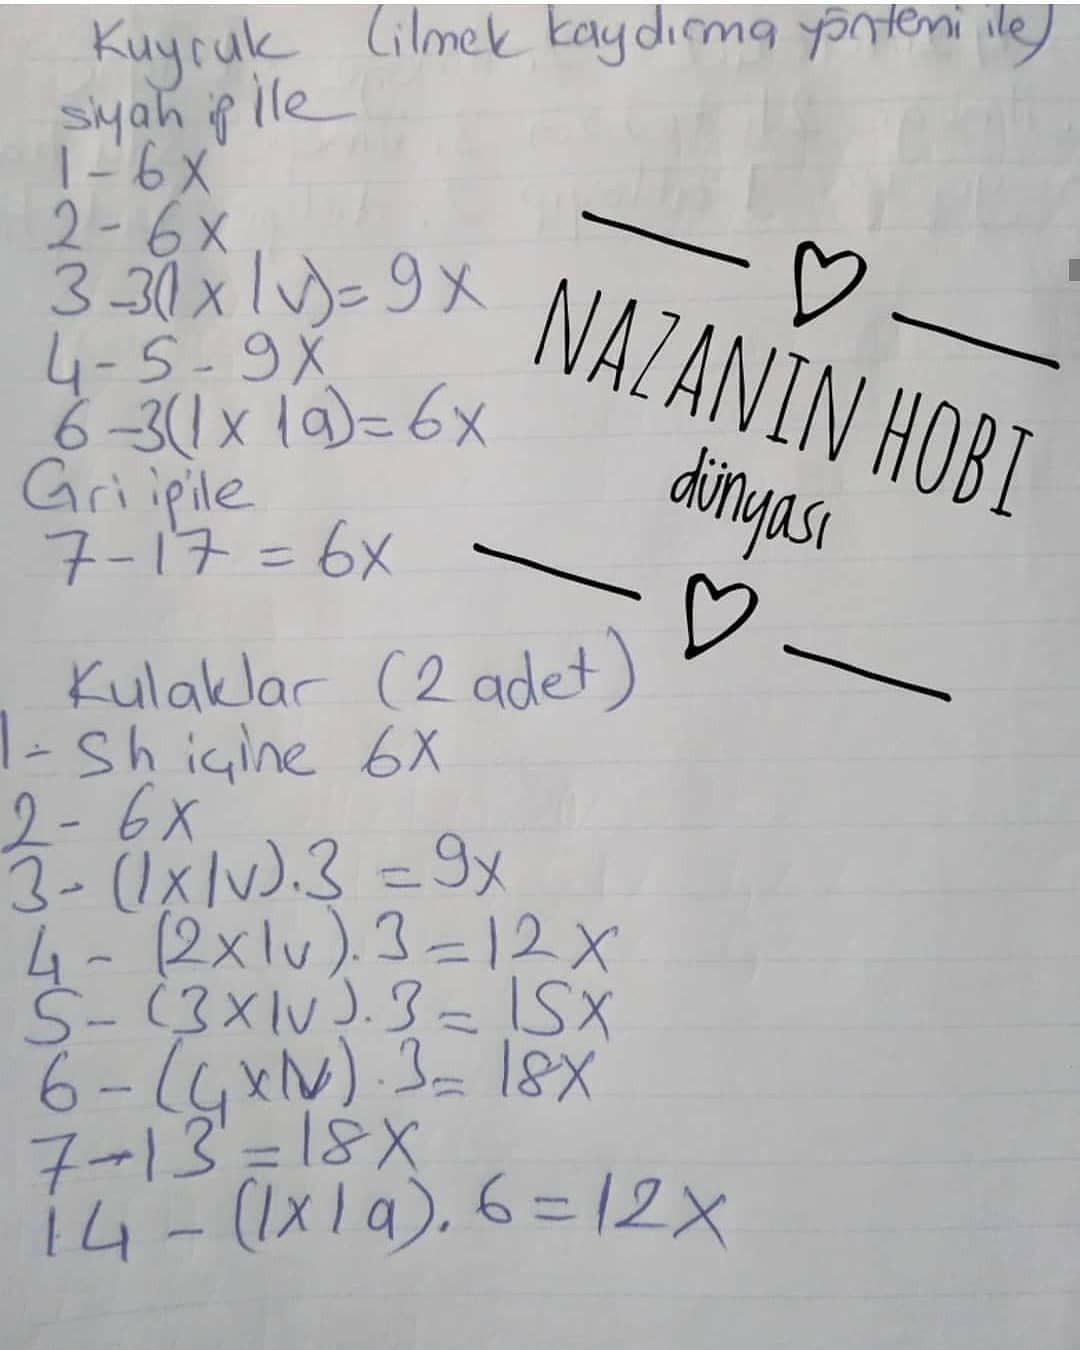 Kuyruk (ilmek kaydırma yöntemi ile)
siyah ip ile
1-6X
2-6X
3-3(1x1v)=9X
4-5-9X
6-3(1x1a)=6x
Gri ip ile
7-17=6X
NAZANIN HOBI
dünyası
Kulaklar (2 adet)
1-Sh içine 6X
2-6X
3-(1x1v).3=9x
4-(2x1v).3=12X
5-(3x1v).3=15X
6-(4x1v).3=18X
7-13=18X
14-(1x1a).6=12X